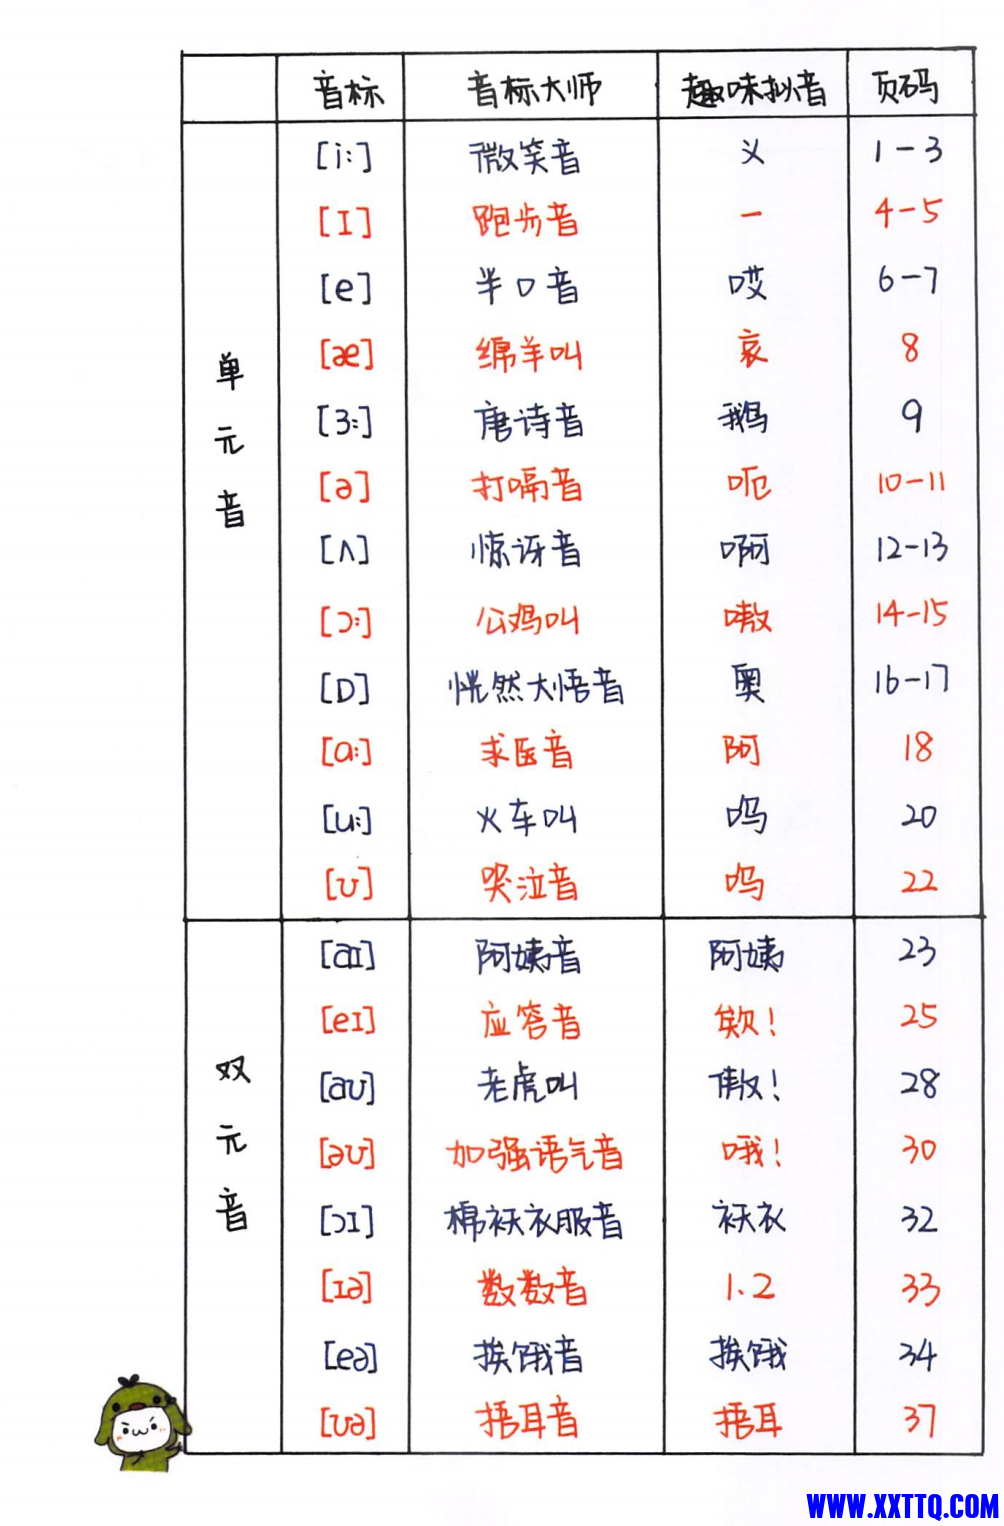 音标 音标大师 趣味拟音 页码
单元音
[i:] 微笑音 义 1-3
[I] 跑步音 一 4-5
[e] 半口音 哎 6-7
[æ] 绵羊叫 哀 8
[3:] 唐诗音 鹅 9
[ə] 打嗝音 呃 10-11
[ʌ] 惊讶音 啊 12-13
[ɔ:] 公鸡叫 嗷 14-15
[D] 恍然大悟音 奥 16-17
[a:] 求医音 阿 18
[u:] 火车叫 呜 20
[ʊ] 哭泣音 呜 22
双元音
[aɪ] 阿姨音 阿姨 23
[eɪ] 应答音 欸! 25
[aʊ] 老虎叫 傲! 28
[əʊ] 加强语气音 哦! 30
[ɔɪ] 棉袄衣服音 袄衣 32
[ɪə] 数数音 1.2 33
[eə] 挨饿音 挨饿 34
[ʊə] 捂耳音 捂耳 37
WWW.XXTTQ.COM